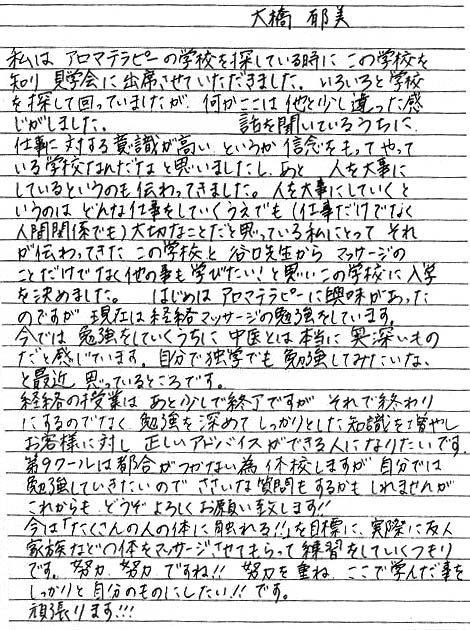 大橋 郁美
私は アロマテラピーの学校を探している時に この学校を
知り 見学会に出席させていただきました。いろいろと学校
を探して回っていましたが、何かここは他と少し違った感
じがしました。 話を聞いているうちに
仕事に対する意識が高い というか 信念をもってやって
いる学校なんだなと思いましたし、あと 人を大事に
しているというのも伝わってきました。人を大事にしていくと
いうのは どんな仕事をしていくうえでも(仕事だけでなく
人間関係でも)大切なことだと思っている私にとって それ
が伝わってきた この学校と 谷口先生から マッサージの
ことだけでなく他の事も学びたい!と思いこの学校に入学
を決めました。 はじめは アロマテラピーに興味があった
のですが 現在は経絡マッサージの勉強をしています。
今では 勉強をしていくうちに 中医とは本当に 奥深いもの
だと感じています。自分で独学でも 勉強してみたいな、
と最近 思っているところです。
経絡の授業は あと少しで終了ですが それで終わり
にするのでなく 勉強を深めて しっかりとした知識を増やし
お客様に対し 正しいアドバイスができる人になりたいです。
第9クールは都合がつかない為 休校しますが 自分では
勉強していきたいので ささいな質問もするかもしれませんが
これからも どうぞよろしくお願い致します!!
今は「たくさんの人の体に触れる!!」を目標に、実際に友人
家族などの体をマッサージさせてもらって練習をしていくつもり
です。努力 努力 ですね!! 努力を重ね ここで学んだ事を
しっかりと 自分のものにしたい!! です。
頑張ります!!!